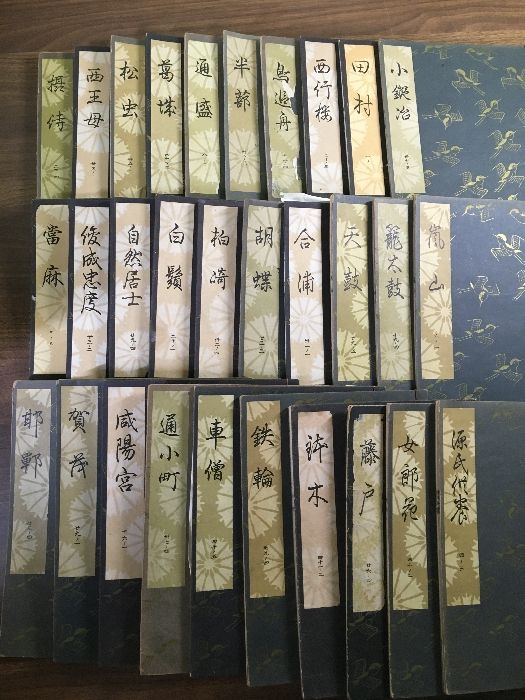 小鍛冶
田村
西行桜
鳥追舟
半蔀
通盛
葛城
松虫
西王母
摂待
嵐山
籠太鼓
天鼓
合浦
胡蝶
柏崎
白鬚
自然居士
俊成忠度
當麻
源氏供養
女郎花
藤戸
鉢木
鉄輪
車僧
通小町
咸陽宮
賀茂
邯鄲